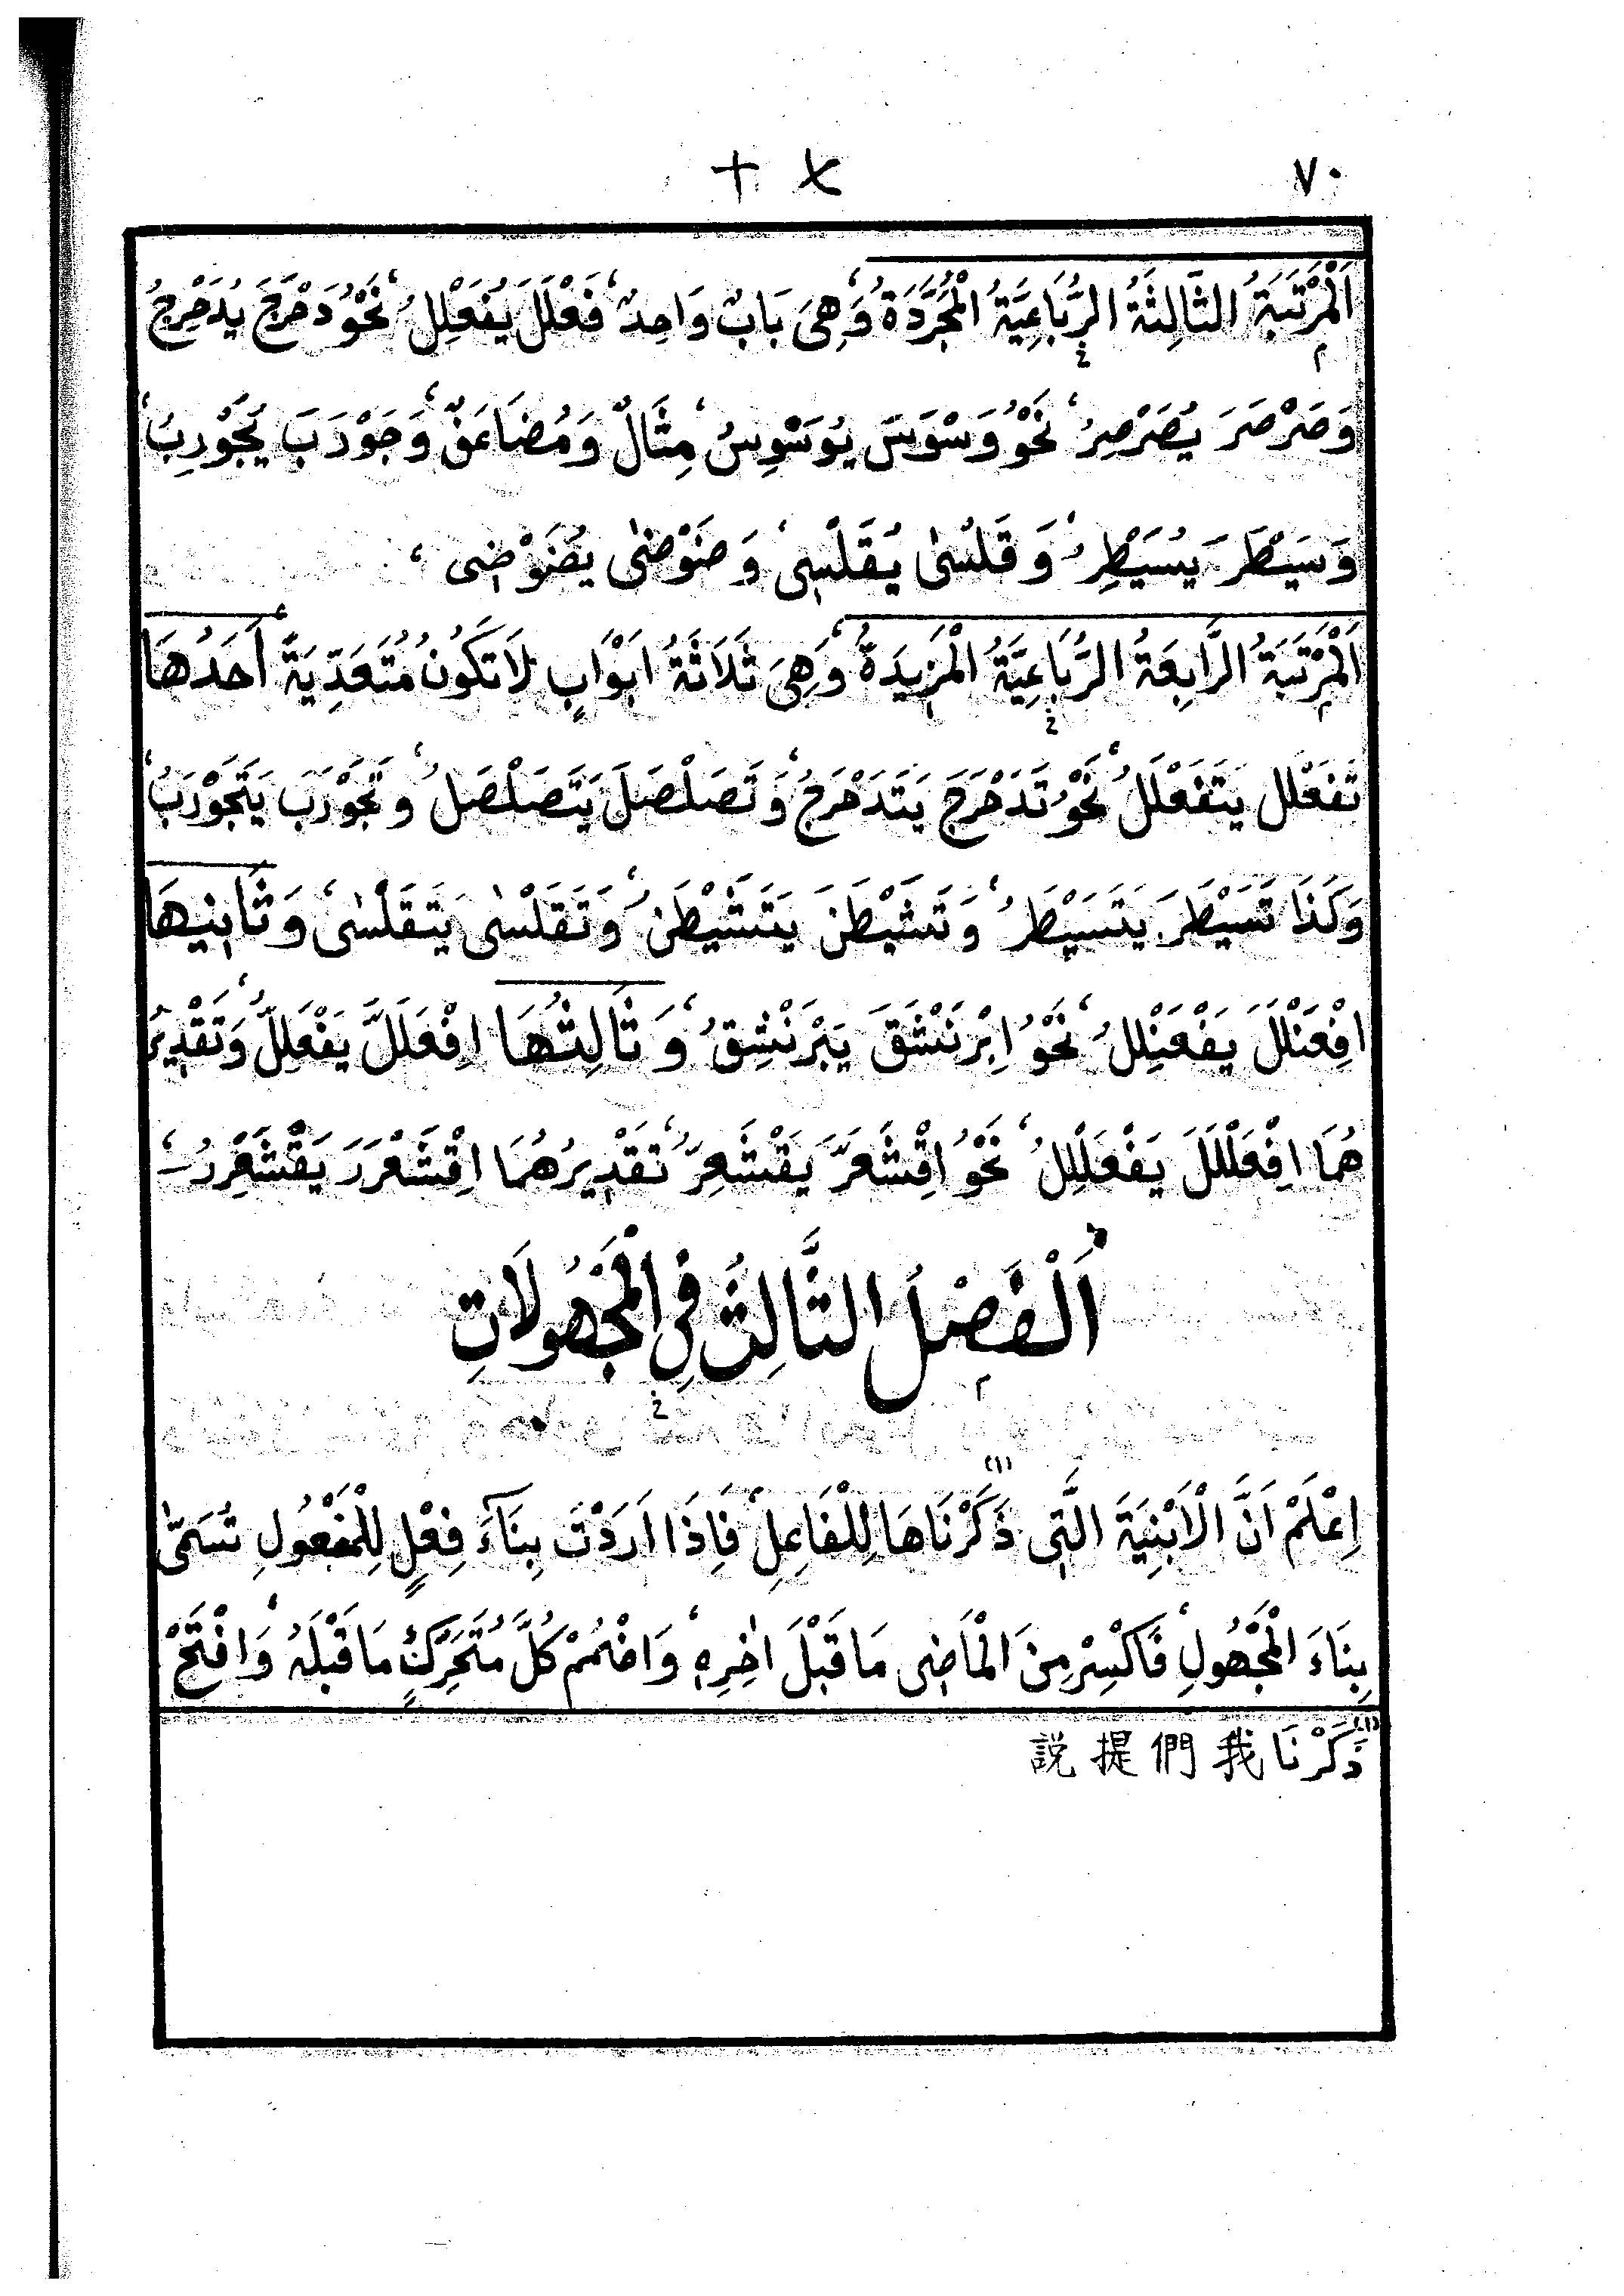 ٧٠
اَلْمَرْتَبَةُ الثَّالِثَةُ الرُّبَاعِيَّةُ الْمُجَرَّدَةُ، وَهِىَ بَابٌ وَاحِدٌ، فَعْلَلَ يُفَعْلِلُ، نَحْوُ دَحْرَجَ يُدَحْرِجُ
وَصَرْصَرَ يُصَرْصِرُ، نَحْوُ وَسْوَسَ يُوَسْوِسُ، مِثَالٌ وَمُضَاعَفٌ، وَجَوْرَبَ يُجَوْرِبُ،
وَسَيْطَرَ يُسَيْطِرُ، وَقَلْسٰى يُقَلْسِى، وَضَوْضٰى يُضَوْضِى،
اَلْمَرْتَبَةُ الرَّابِعَةُ الرُّبَاعِيَّةُ الْمَزِيدَةُ، وَهِىَ ثَلَاثَةُ اَبْوَابٍ لَا تَكُونُ مُتَعَدِّيَةً، أَحَدُهَا
تَفَعْلَلَ يَتَفَعْلَلُ، نَحْوُ تَدَحْرَجَ يَتَدَحْرَجُ، وَتَصَلْصَلَ يَتَصَلْصَلُ، وَتَجَوْرَبَ يَتَجَوْرَبُ،
وَكَذَا تَسَيْطَرَ يَتَسَيْطَرُ، وَتَشَيْطَنَ يَتَشَيْطَنُ، وَتَقَلْسٰى يَتَقَلْسٰى، وَثَانِيهَا
اِفْعَنْلَلَ يَفْعَنْلِلُ، نَحْوُ اِبْرَنْشَقَ يَبْرَنْشِقُ، وَثَالِثُهَا اِفْعَلَلَّ يَفْعَلِلُّ، وَتَقْدِيرُ
هُمَا اِفْعَلْلَلَ يَفْعَلْلِلُ، نَحْوُ اِقْشَعَرَّ يَقْشَعِرُّ، تَقْدِيرُهُمَا اِقْشَعْرَرَ يَقْشَعْرِرُ،
اَلْفَصْلُ الثَّالِثُ فِى الْمَجْهُولَاتِ
اِعْلَمْ اَنَّ الْاَبْنِيَةَ الَّتِى ذَكَرْنَاهَا (١) لِلْفَاعِلِ، فَاِذَا اَرَدْتَ بِنَآءَ فِعْلٍ لِلْمَفْعُولِ تُسَمّٰى
بِنَاءَ الْمَجْهُولِ، فَاكْسِرْ مِنَ الْمَاضِى مَا قَبْلَ اٰخِرِهِ، وَاضْمُمْ كُلَّ مُتَحَرِّكٍ مَا قَبْلَهُ، وَافْتَحْ
(١) ذَكَرْنَا 我們提説